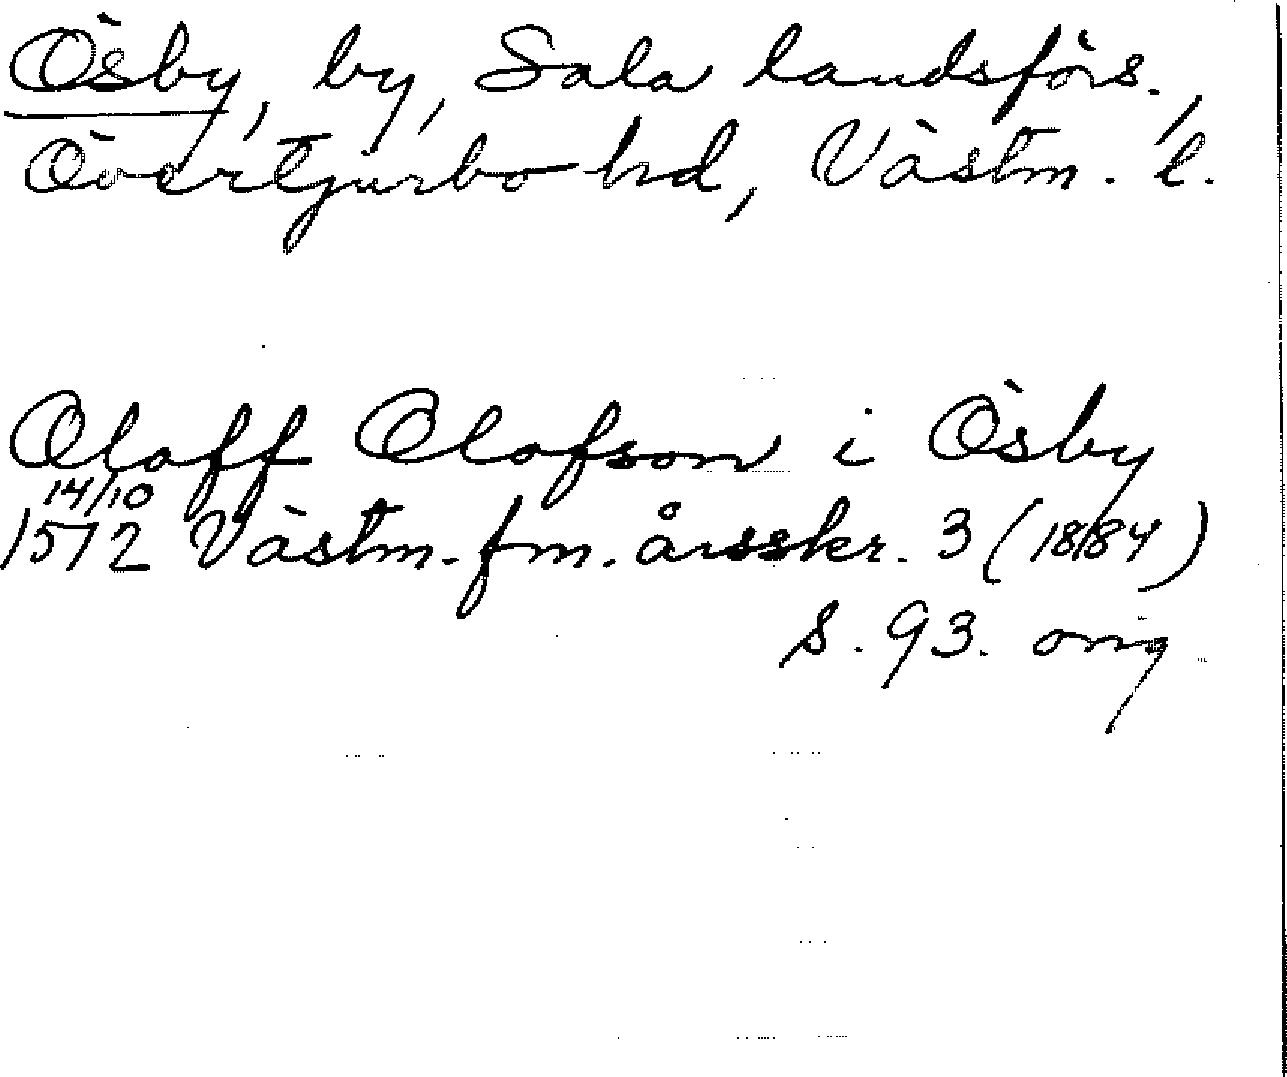 Ösby, by, Sala landsförs.,
Övertjurbo hd, Västm. l.
Oloff Olofson i Ösby
14/10
1572 Västm. fm. årsskr. 3 (1884)
s. 93. orig